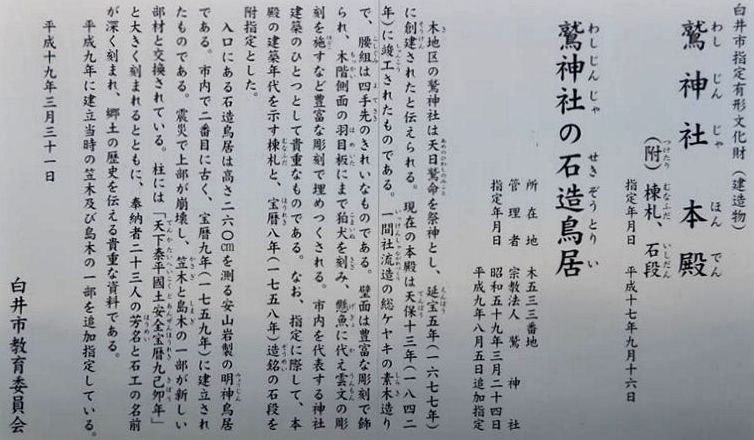 白井市指定有形文化財（建造物）
鷲神社本殿
（附）棟札、石段
指定年月日　平成十七年九月十六日
鷲神社の石造鳥居
所在地　木五三三番地
管理者　宗教法人　鷲神社
指定年月日　昭和五十九年三月二十四日
平成九年八月五日追加指定
木地区の鷲神社は天日鷲命を祭神とし、延宝五年（一六七七年）
に創建されたと伝えられる。現在の本殿は天保十三年（一八四二
年）に竣工されたものである。一間社流造の総ケヤキの素木造り
で、腰組は四手先のきれいなものである。壁面は豊富な彫刻で飾
られ、木階側面の羽目板にまで狛犬を刻み、懸魚に代え雲文の彫
刻を施すなど豊富な彫刻で埋めつくされる。市内を代表する神社
建築のひとつとして貴重なものである。なお、指定に際して、本
殿の建築年代を示す棟札と、宝暦八年（一七五八年）造銘の石段を
附指定とした。
入口にある石造鳥居は高さ二六〇㎝を測る安山岩製の明神鳥居
である。市内で二番目に古く、宝暦九年（一七五九年）に建立され
たものである。震災で上部が崩壊し、笠木・島木の一部が新しい
部材と交換されている。柱には「天下泰平國土安全宝暦九己卯年」
と大きく刻まれるとともに、奉納者二十三人の芳名と石工の名前
が深く刻まれ、郷土の歴史を伝える貴重な資料である。
平成九年に建立当時の笠木及び島木の一部を追加指定している。
平成十九年三月三十一日
白井市教育委員会